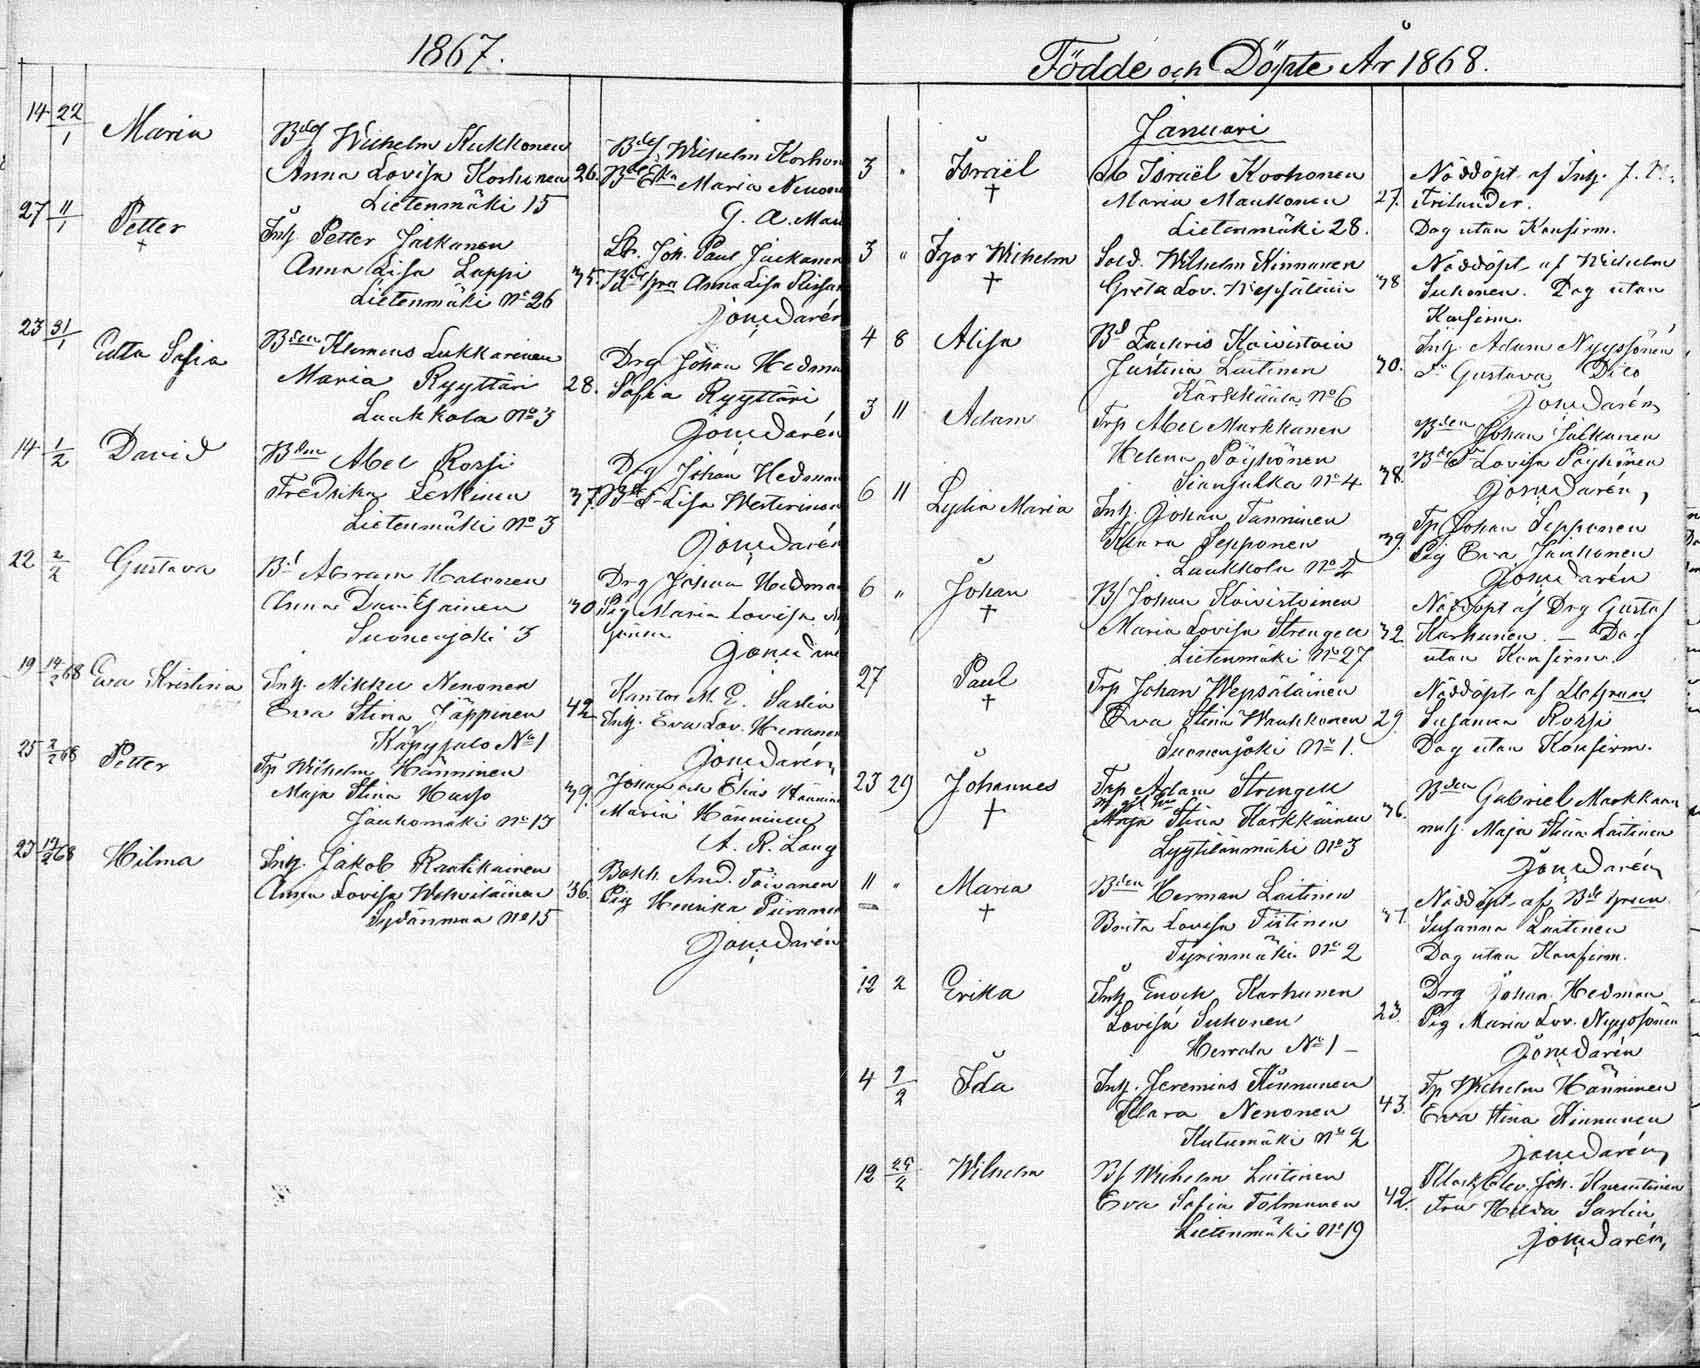 1867.
14 22/1 Maria
Bdes Wilhelm Kukkonen
Anna Lovisa Korhonen 26.
Lietenmäki 15
Bdes Wilhelm Korhon
Maria Nenon
G. A. Man
27 11/1 Petter †
Inh. Petter Jalkanen
Anna Lisa Lappi 35.
Lietenmäki No 26
Lb. Joh. Paul Jalkanen
Anna Lisa
Jon. Darén
23 31/1 Edla Sofia
Bden Klemens Lukkarinen
Maria Ryyttäri 28.
Luukkola No 3
Drg Johan Hedman
Sofia Ryyttäri
Jon. Darén
14 1/2 David
Bden Abel Rossi
Fredrika Leskinen 37.
Lietenmäki No 3
Drg Johan Hedman
Lisa Westerinen
Jon. Darén
22 2/2 Gustava
Bd Abram Halonen
Anna 30
Suonenjoki 3
Drg Johan Hedman
Pig Maria Lovisa
Jon. Darén
19 14/2 68 Eva Kristina
Inh. Mikkel Nenonen
Eva Stina Jäppinen 42
Käpysalo No 1
Kantor M. E. Sarlin
Inh. Eva Lov. Herranen
Jon. Darén
25 2/2 68 Petter
Tp Wilhelm Hänninen
Maja Stina Hasso 39.
Jauhomäki No 13
Johan och Elias Hännin
Maria Hänninen
A. R. Lang
23 19/2 68 Hilma
Inh. Jakob Rautikainen
Anna Lovisa Wehviläinen 36.
Sydänmaa No 15
Bokh. And. Toivanen
Pig Henrika Piiranen
Jon. Darén
Födde och Döpte År 1868.
Januari
3 " Israël †
Lb Israël Korhonen
Maria Maukonen 27.
Lietenmäki 28.
Nöddöpt af Inh. J. N.
Frilander.
Dog utan Konfirm.
3 " Igor Wilhelm †
Sold. Wilhelm Kinnunen
Greta Lov. Wepsäläin 38
Nöddöpt af Wilhelm
Suhonen. Dog utan
Konfirm.
4 8 Alisa
Bd Zachris Koivistoin
Justina Laitinen 30.
Kärkkäälä No 6
Inh. Adam Nyyssönen
Gustava Dito
Jon. Darén
3 11 Adam
Trp Abel Markkanen
Helena Pöyhönen 38.
Sianjalka No 4
Bden Johan Jalkanen
Lovisa Pöyhönen
Jon. Darén
6 11 Lydia Maria
Inh. Johan Tanninen
Klara Sepponen 39.
Luukkola No 2
Tp Johan Sepponen
Pig Eva Jauhonen
Jon. Darén
6 " Johan †
Bs Johan Koivistoinen
Maria Lovisa Strengell 32
Lietenmäki No 27
Nöddöpt af Drg Gustaf
Karhunen. — Dog
utan Konfirm.
27 Paul †
Trp Johan Wepsäläinen
Eva Stina Waukkonen 29.
Suonenjoki No 1.
Nöddöpt af Lbsgrun
Susanna Rossi
Dog utan Konfirm.
23 29 Johannes †
Trp Adam Strengell
Maja Stina Kärkkäinen 36.
Lyytilänmäki No 3
Bden Gabriel Markkan
Maja Stina Laitinen
Jon. Darén
11 " Maria †
Bden Herman Laitinen
Brita Lovisa Tiitinen 37.
Tyrinmäki No 2
Nöddöpt af Bdegrun
Susanna Laitinen
Dog utan Konfirm.
12 2 Erika
Inh. Enoch Karhunen
Lovisa Suhonen 23.
Herrala No 1 —
Drg Johan Hedman
Pig Maria Lov. Nyyssönen
Jon. Darén
4 9/2 Ida
Inh. Jeremias Kinnunen
Klara Nenonen 43.
Kutumäki No 2
Tp Wilhelm Hänninen
Eva Stina Kinnunen
Jon. Darén
12 25/2 Wilhelm
Bs Wilhelm Laitinen
Eva Sofia Tolmunen 42.
Lietenmäki No 19
Klock. Elev. Joh.
Fru Hilda Sarlin
Jon. Darén